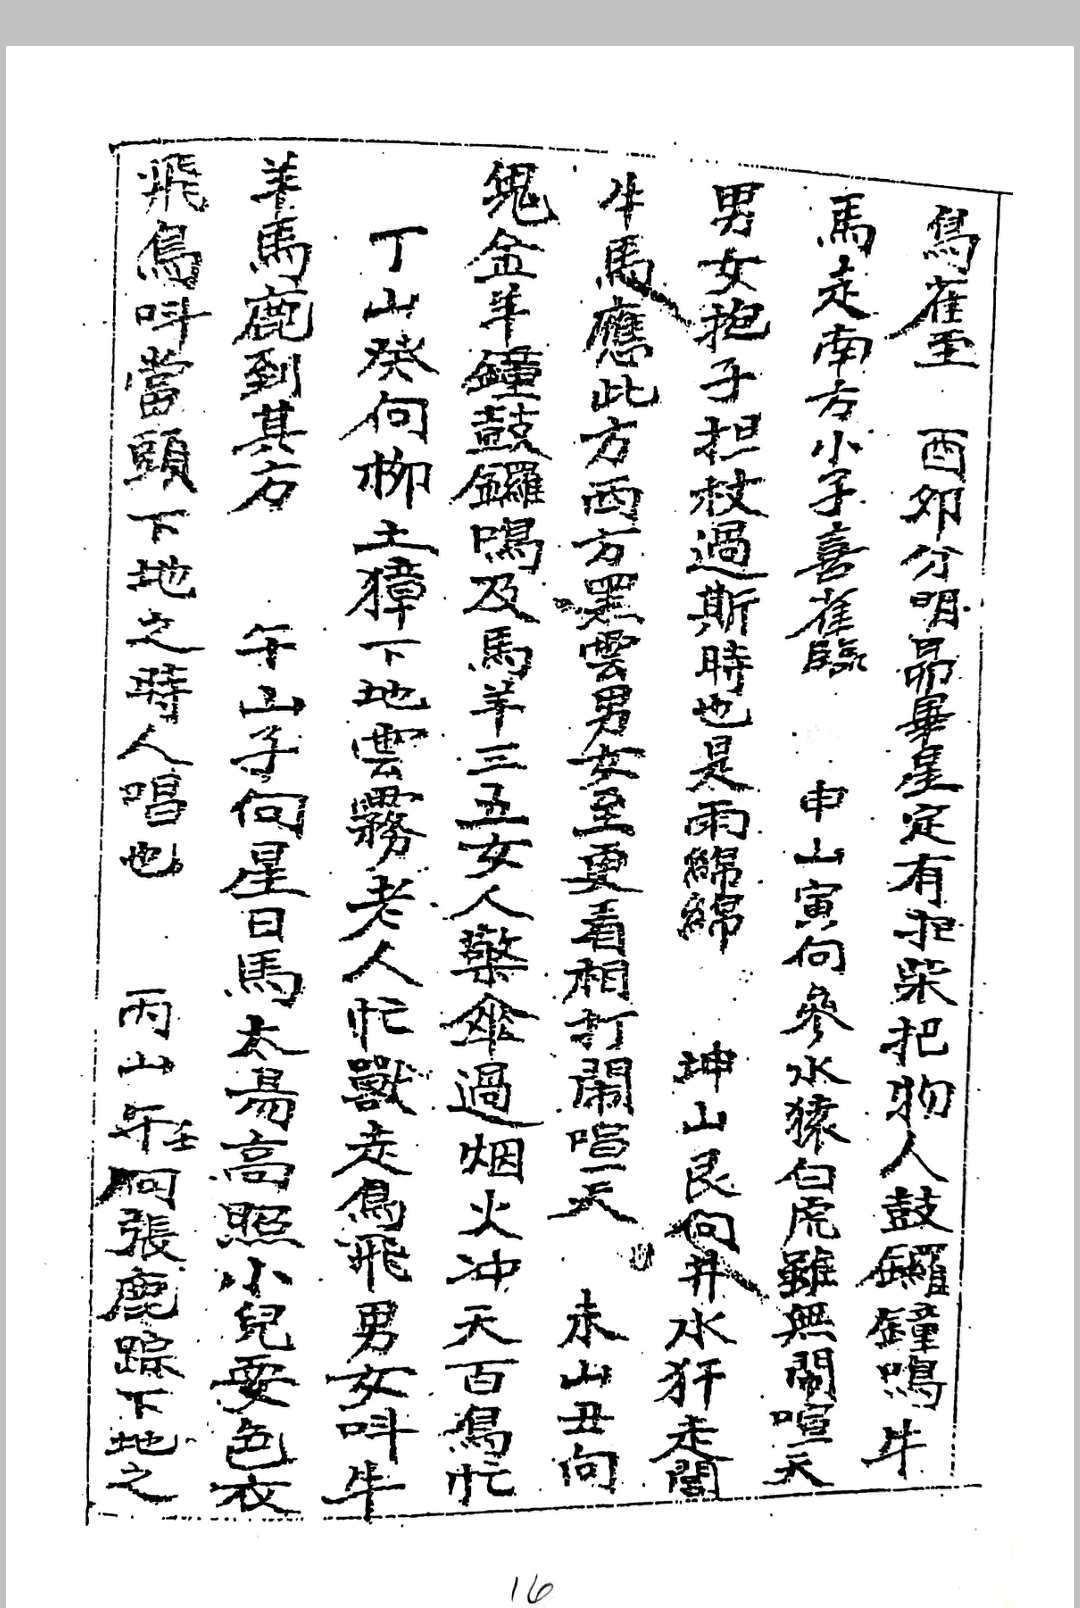 鳥雀至　酉卯分明昴畢星定有担柴把物人鼓鑼鐘鳴牛
馬走南方小子喜雀臨　申山寅向參水猿白虎雖無鬧喧天
男女抱子担杖過斯時也是雨綿綿　坤山艮向井水犴走閣
牛馬應此方西方黑雲男女至更看相打鬧喧天　未山丑向
鬼金羊鐘鼓鑼鳴及馬羊三五女人藥傘過烟火冲天百鳥忙
丁山癸向柳土獐下地雲霧老人忙獸走鳥飛男女呌牛
羊馬鹿到其方　午山子向星日馬太昜高照小兒要色衣
飛鳥呌當頭下地之時人唱也　丙山壬向張鹿踪下地之
16